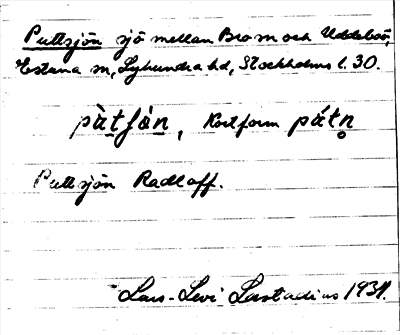 Puttsjön sjö mellan Bro sn och Uddeboö,
Estuna sn, Lyhundra hd, Stockholms l. 30.
pàt̲ʃòn̲, Kortform pátn̥
Puttsjön Radloff.
Lars-Levi Læstadius 1931.